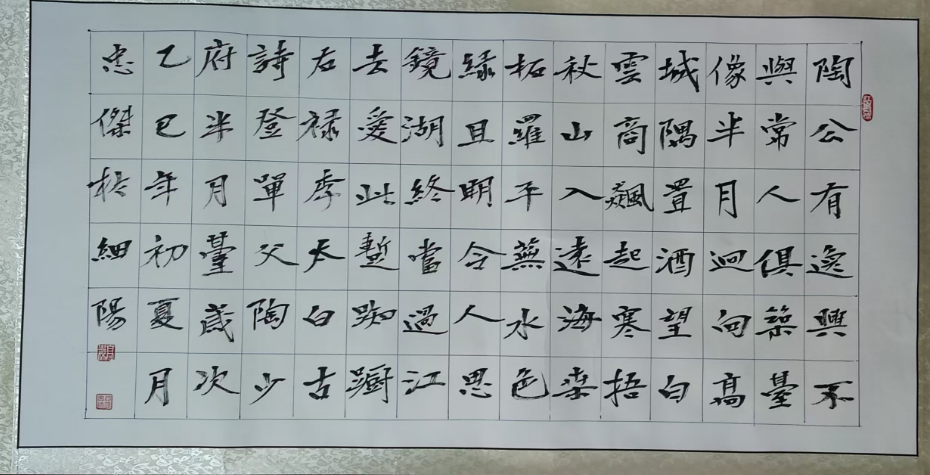 陶公有逸興不
與常人俱築臺
像半月迥向高
城隅置酒望白
雲商飆起寒梧
秋山入遠海桑
柘羅平蕪水色
綠且明令人思
鏡湖終當過江
去愛此蹔踟蹰
右禄李太白古
詩登單父陶少
府半月臺歲次
乙巳年初夏月
忠傑於細陽